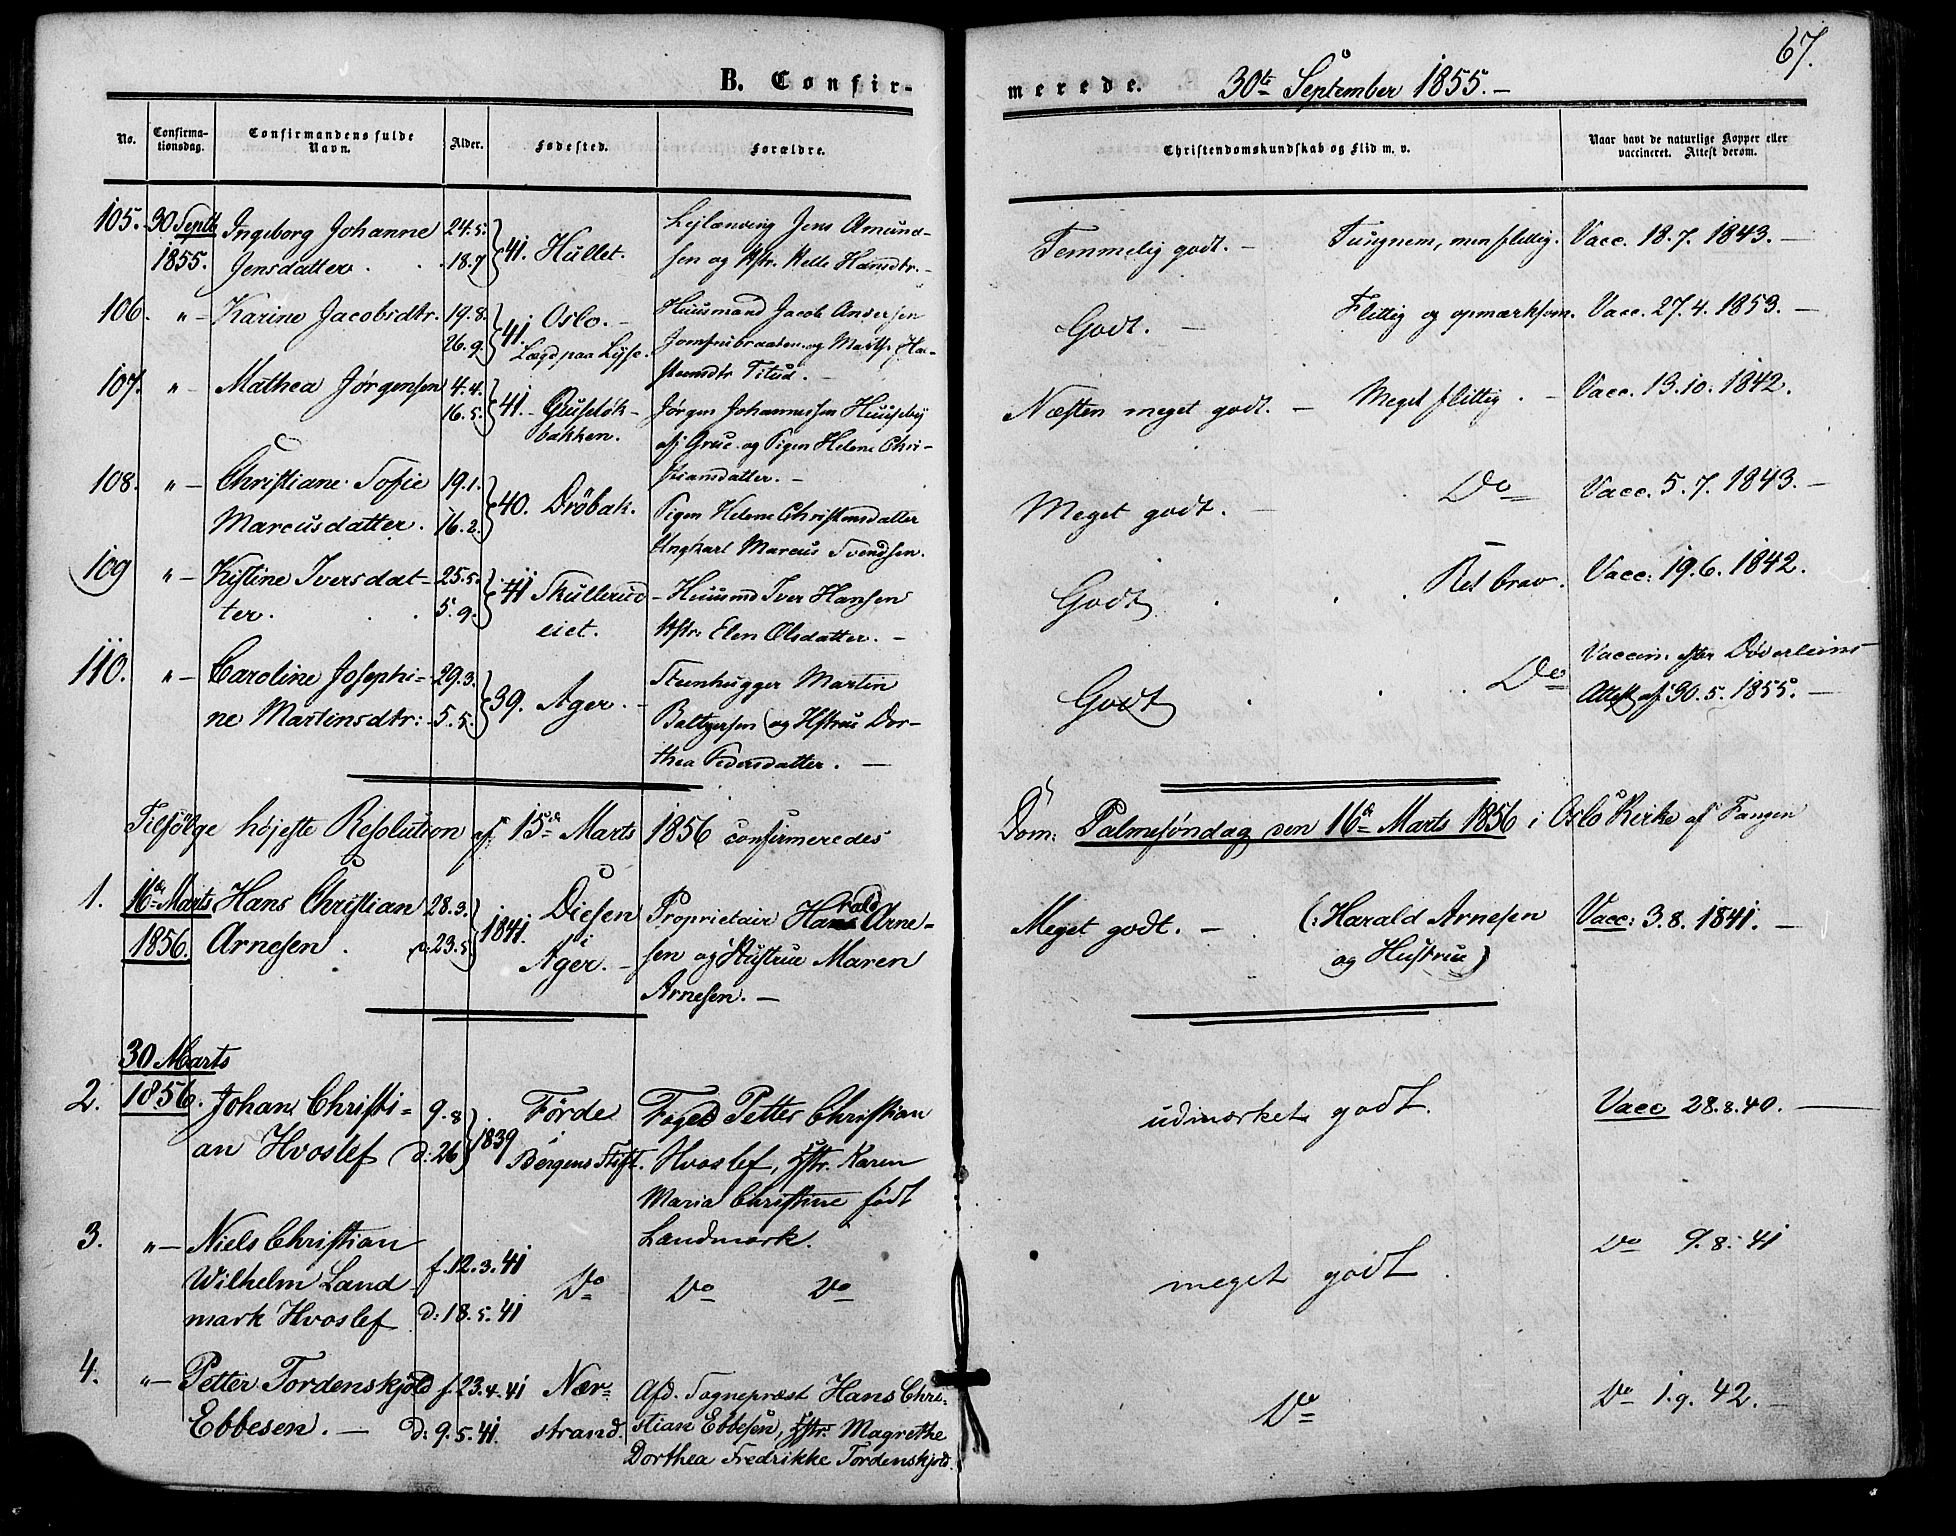 67.
B. Confir-
merede. 30te September 1855. —
No.
Confirma-
tionsdag.
Confirmandens fulde
Navn.
Alder.
Fødested.
Forældre.
Christendomskundskab og Flid m. v.
Naar havt de naturlige Kopper eller
vaccineret. Attest derom.
105. 30 Septb Ingeborg Johanne 24.5. 41. Hullet. Lejlænding Jens Amund-
1855. Jensdatter. 18.7 sen og Hstr. Helle Hansdtr. —
Temmelig godt. — Tungnem, men flittig. Vacc. 18.7. 1843. —
106. " — Karine Jacobsdtr. 19.8. 41. Oslo. — Huusmand Jacob Andersen
26.9. Lægd paa Lysse. og Marthe
Titud. —
Godt. — Flittig og opmærksom. Vacc. 27.4. 1853. —
107. " — Mathea Jørgensen 4.4. 41. — Gruseløk- Jørgen Johannessen Huuseby
16.5. bakken. af Grue og Pigen Helene Chri-
stiansdatter. —
Næsten meget godt. — Meget flittig. — Vacc. 13.10. 1842.
108. " — Christiane Sofie 19.1. 40. Drøbak. Pigen Helene Christensdatter
Marcusdatter. 16.2. Ungkarl Marcus Svendsen.
Meget godt. — Do Vacc. 5.7. 1843. —
109 " — Kistine Iversdat- 25.5. 41 Skullerud — Huusmd Iver Hansen
ter. 5.9. eiet. Hstr. Elen Olsdatter. —
Godt Ret brav. Vacc: 19.6. 1842.
110. " — Caroline Josephi- 29.3. 39. Ager. — Steenhugger Martin
ne Martinsdtr: 5.5. Baltzersen og Hstrue Dor-
thea Pedersdatter. —
Godt Do Vaccin. efter Døderleins
Attest af 30.5. 1855. —
Tilfølge højeste Resolution af 15de Marts 1856 confirmeredes
Dom: Palmesøndag den 16de Marts 1856 i Oslo Kirke af Fangen
1. 16de Marts Hans Christian 28.3. 1841. Diesen Proprietair Harald Arne-
1856. Arnesen. d. 23.5 i Ager. — sen og Hustrue Maren
Arnesen. —
Meget godt. — (: Harald Arnesen Vacc: 3.8. 1841. —
og Hustrue)
30 Marts
2. 1856. Johan Christi- 9.8 1839 Førde Foged Petter Christian
an Hvoslef d: 26 Bergens Stift. Hvoslef, Hstr. Karen
Maria Christine født
Landmark.
udmærket godt. Vacc 28.8.40. —
3. " — Niels Christian
Wilhelm Land f. 12.3.41 Do Do Do
mark Hvoslef d: 18.5.41
meget godt. Do 9.8.41
4. " — Petter Tordenskjold f. 23.4.41 Nær- Afd. Sognepræst Hans Chri-
Ebbesen. — d: 9.5.41. strand. stian Ebbesen, Hstr. Magrethe
Dorthea Fredrikke Tordenskjold.
Do Do 1.9.42. —